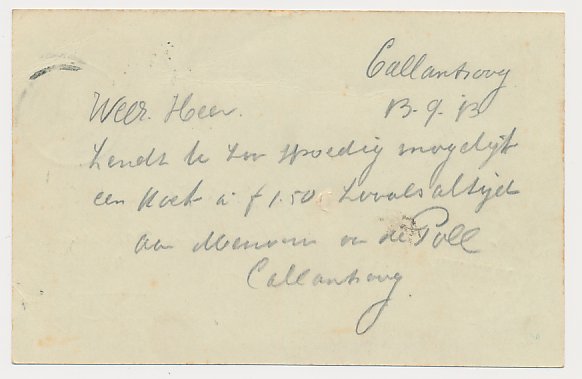 Callantsoog
13-9-13
WelEd. Heer.
Zendt U zoo spoedig mogelijk
een Koek à f 1.50 zooals altijd
aan Mevrouw v d Poll
Callantsoog